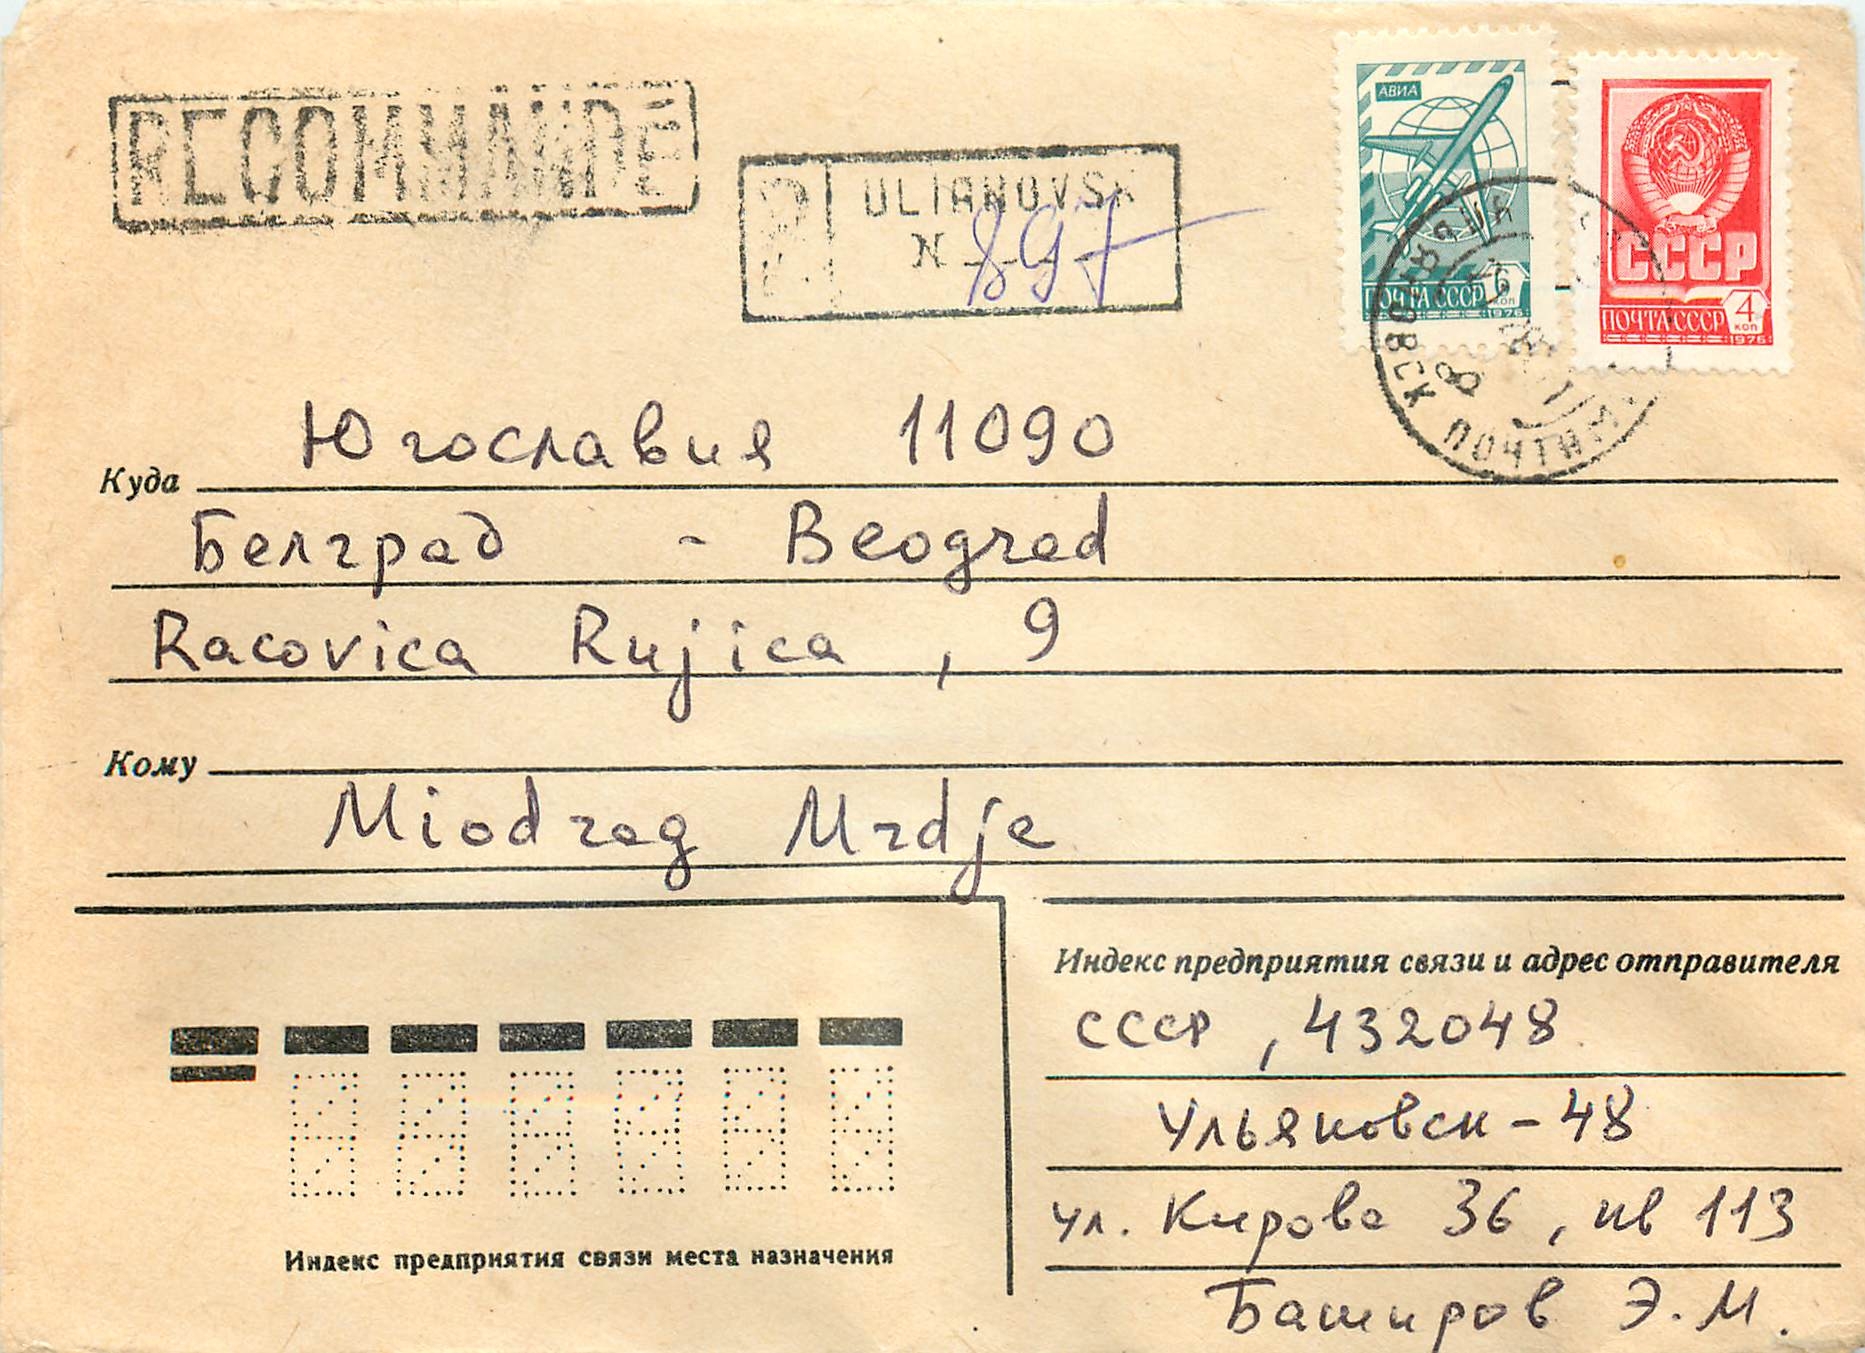 RECOMMANDE
R ULIANOVSK
N 897
АВИА
6 коп
ПОЧТА СССР
1976
СССР
ПОЧТА СССР 4 коп
1976
УЛЬЯНОВСК ПОЧТАМТ
Югославия 11090
Куда
Белград - Beograd
Racovica Rujica, 9
Кому
Miodrag Mrdje
Индекс предприятия связи и адрес отправителя
СССР, 432048
Ульяновск-48
ул. Кирова 36, кв 113
Баширов Э.М.
Индекс предприятия связи места назначения